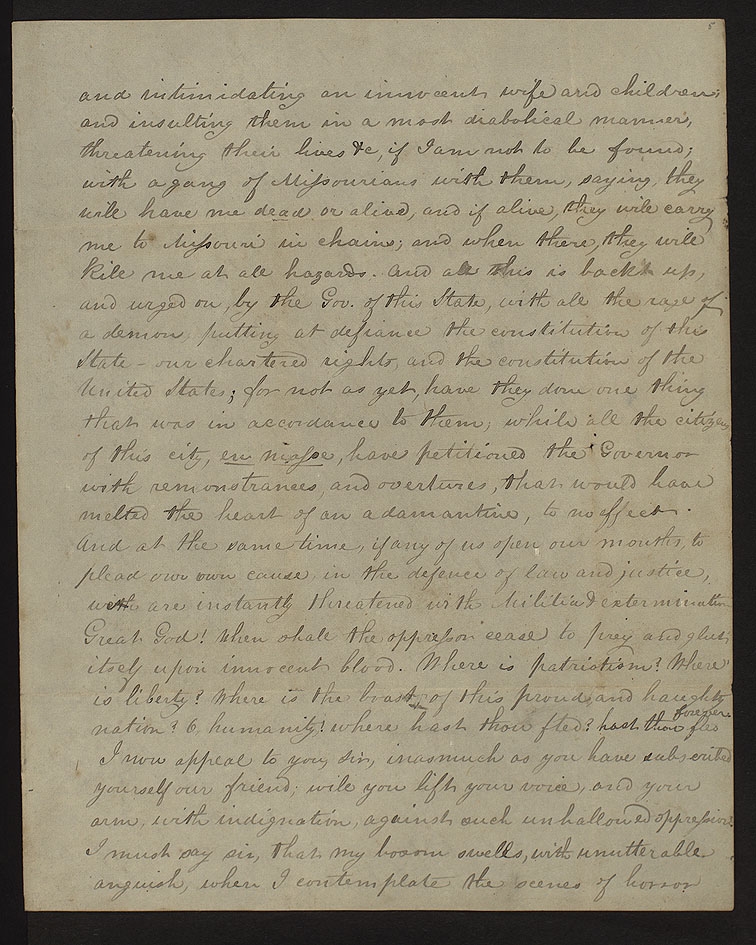 5
and intimidating an innocent wife and children;
and insulting them in a most diabolical manner,
threatening their lives &c, if I am not to be found;
with a gang of Missourians with them, saying, they
will have me dead or alive, and if alive, they will carry
me to Missouri in chains; and when there, they will
kill me at all hazards. And all this is backt up,
and urged on, by the Gov. of this State, with all the rage of
a demon, putting at defiance the constitution of this
State – our chartered rights, and the constitution of the
United States; for not as yet, have they done one thing
that was in accordance to them; while all the citizens
of this city, en masse, have petitioned the Governor
with remonstrances, and overtures, that would have
melted the heart of an adamantine, to no effect.
And at the same time, if any of us open our mouths, to
plead our own cause, in the defence of law and justice,
we are instantly threatened with Militia & extermination
Great God! When shall the oppressor cease to prey and glut
itself upon innocent blood. Where is patriotism? Where
is liberty? Where is the boast of this proud and haughty
nation? O, humanity! where hast thou fled? hast thou fled forever.
I now appeal to you, sir, inasmuch as you have subscribed
yourself our friend; will you lift your voice, and your
arm, with indignation, against such unhallowed oppression?
I must say sir, that my bosom swells, with unutterable
anguish, when I contemplate the scenes of horror